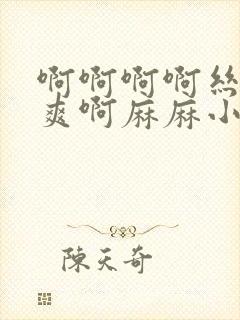 啊啊啊啊絲
爽啊麻麻小
陳天奇